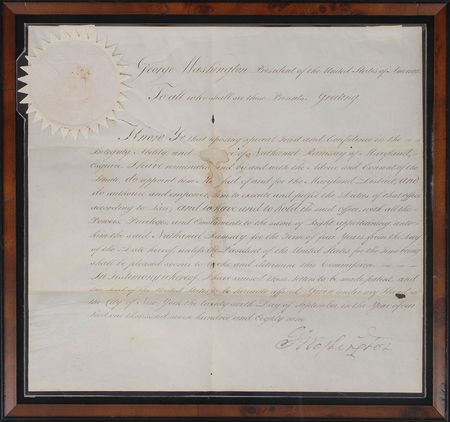 George Washington President of the United States of America
To all who shall see these Presents Greeting
Know Ye that reposing special Trust and Confidence in the
Integrity Ability and of Nathaniel Ramsay of Maryland
Esquire I have nominated and by and with the Advice and Consent of the
Senate do appoint him Marshal of and for the Maryland District and
do authorize and empower him to execute and fulfil the Duties of that office
according to Law and to have and to hold the said office with all the
Powers Privileges and Emoluments to the same of Right appertaining unto
him the said Nathaniel Ramsay for the Term of four Years from the Day
of the Date hereof unless the President of the United States for the time being
shall be pleased sooner to revoke and determine this Commission
In Testimony whereof I have caused these Letters to be made patent and
the seal of the United States to be hereunto affixed Given under my Hand at
the City of New York the twenty sixth Day of September in the Year of our
Lord one thousand seven hundred and Eighty nine
GWashington